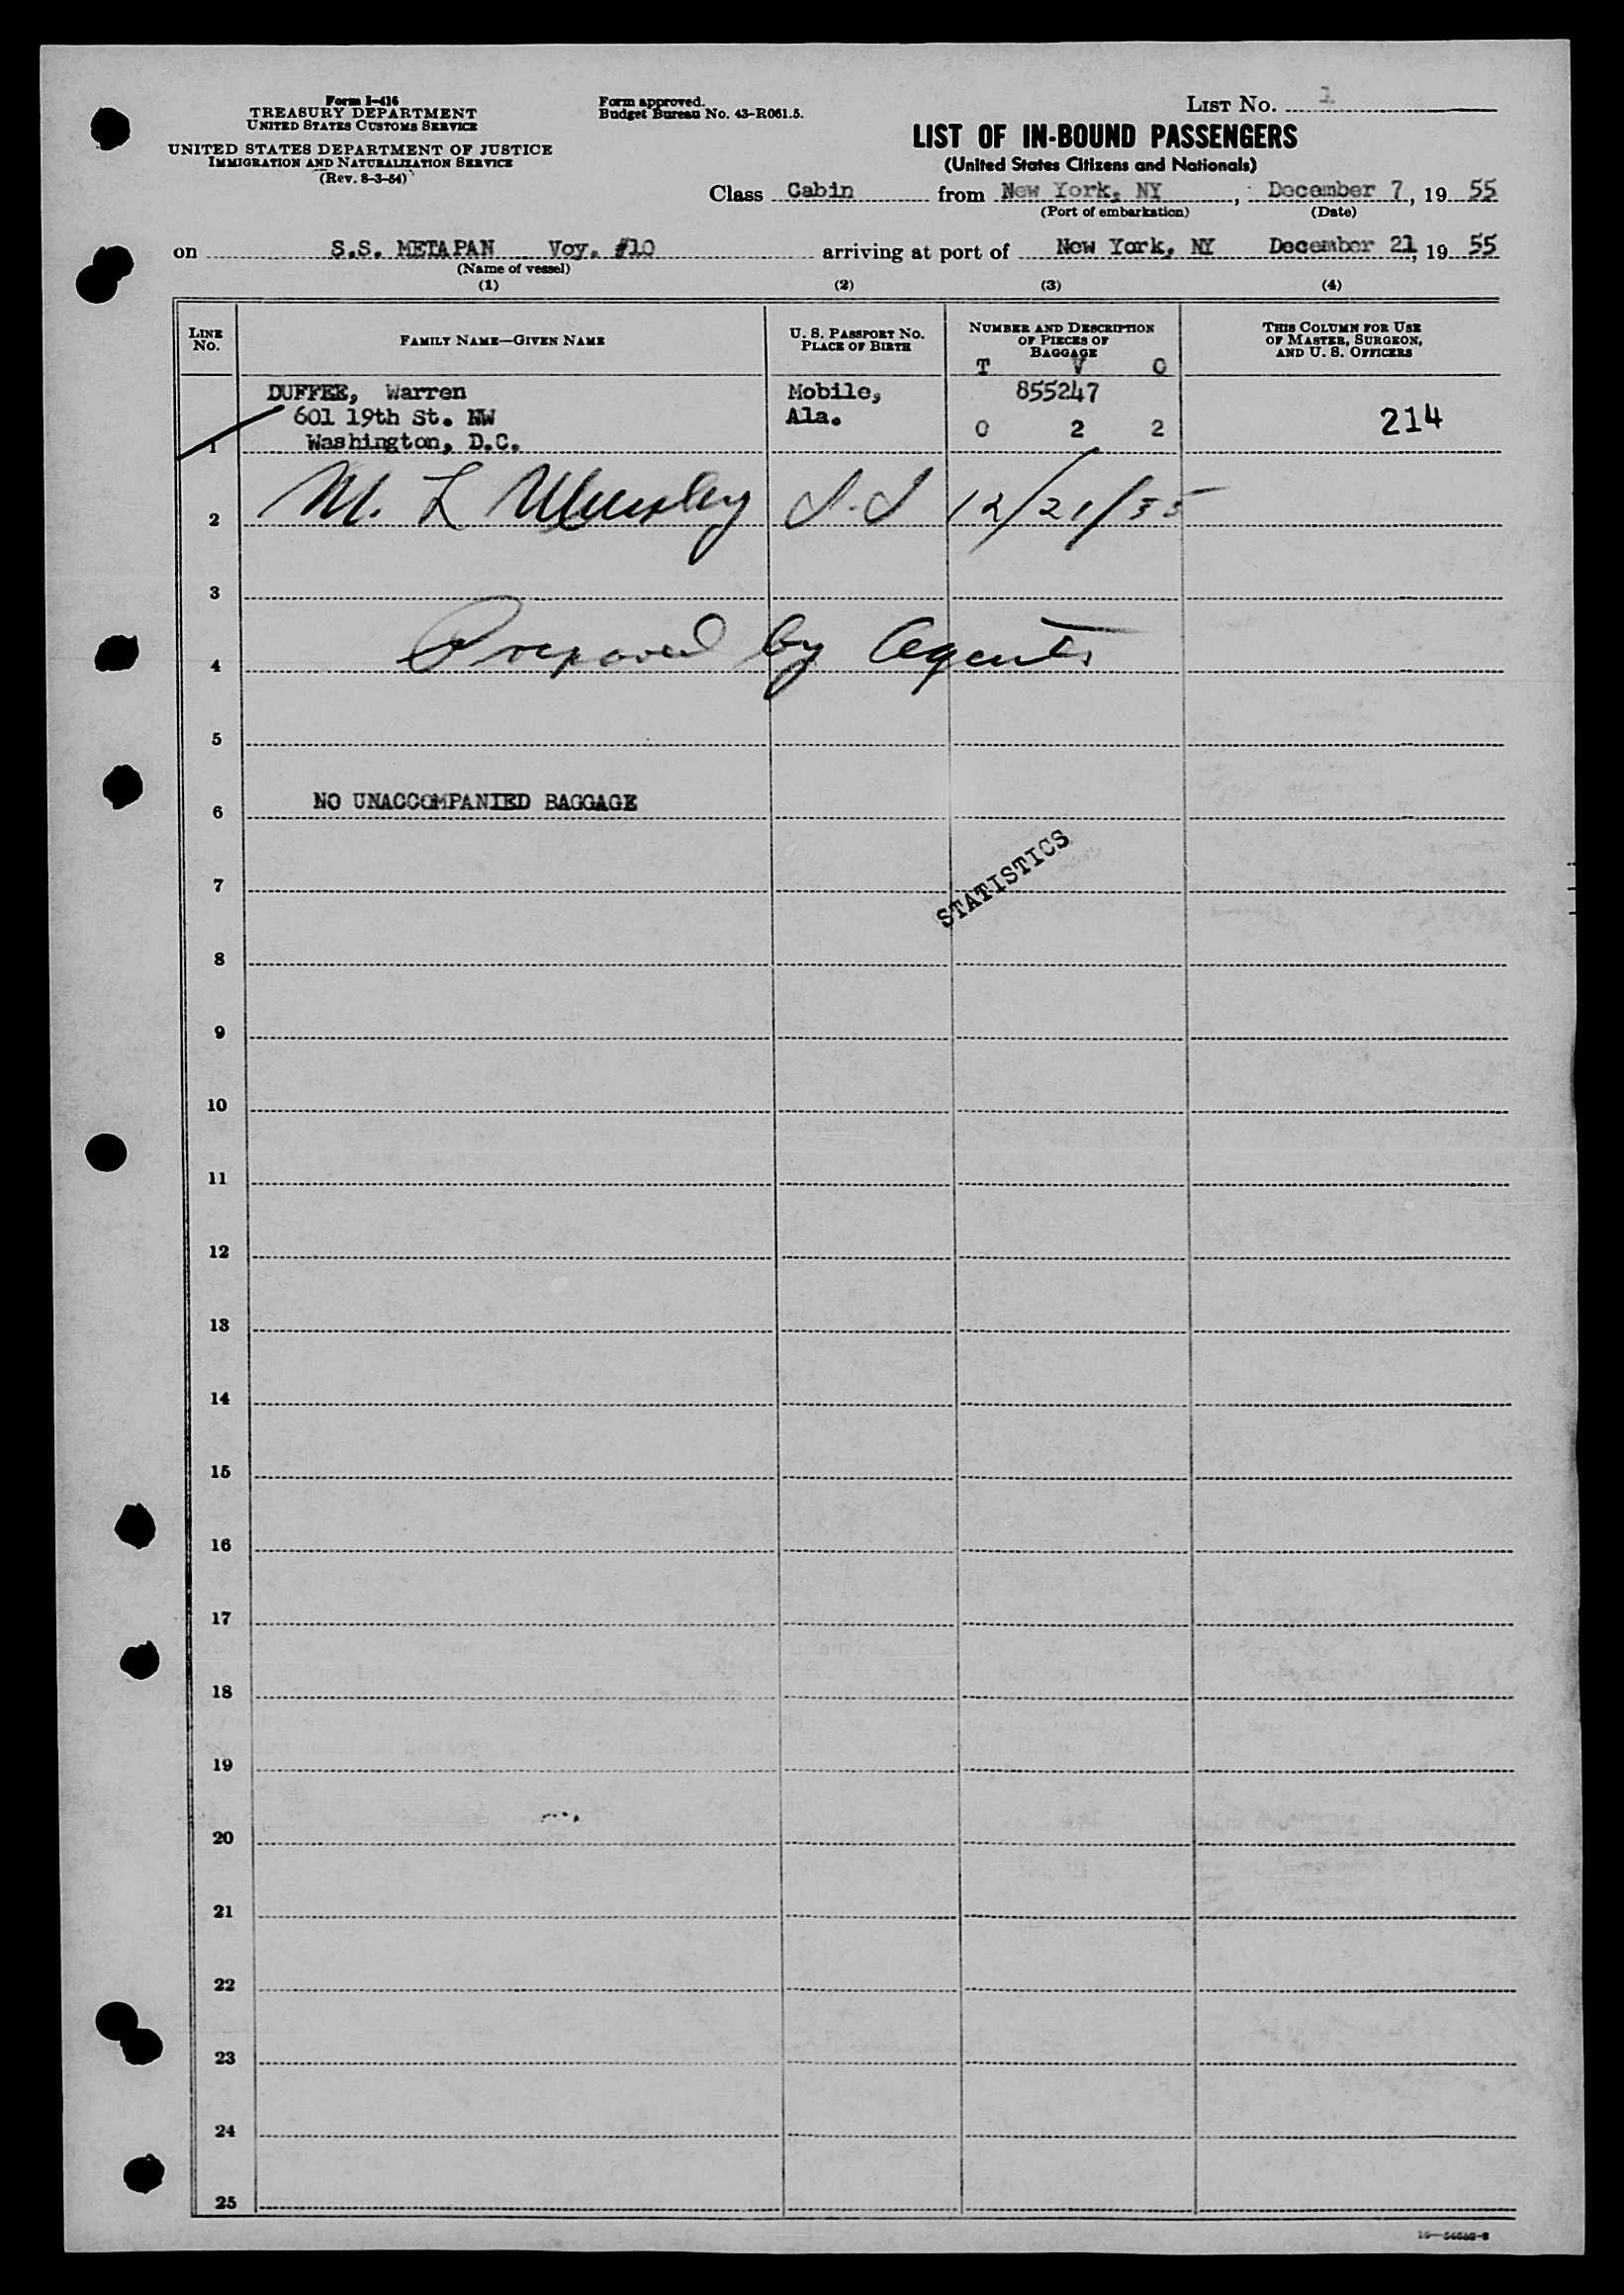 Form I-416
TREASURY DEPARTMENT
UNITED STATES CUSTOMS SERVICE
UNITED STATES DEPARTMENT OF JUSTICE
IMMIGRATION AND NATURALIZATION SERVICE
(Rev. 8-3-54)
Form approved.
Budget Bureau No. 43-R061.5.
LIST No. 1
LIST OF IN-BOUND PASSENGERS
(United States Citizens and Nationals)
Class Cabin from New York, NY, December 7, 19 55
(Port of embarkation) (Date)
on S.S. METAPAN Voy. #10 arriving at port of New York, NY December 21, 19 55
(Name of vessel)
(1) (2) (3) (4)
LINE No. FAMILY NAME—GIVEN NAME U. S. PASSPORT No. PLACE OF BIRTH NUMBER AND DESCRIPTION OF PIECES OF BAGGAGE THIS COLUMN FOR USE OF MASTER, SURGEON, AND U. S. OFFICERS
T V O
DUFFEE, Warren Mobile, 855247
601 19th St. NW Ala. 0 2 2 214
1 Washington, D.C.
2 M. L 12/21/55
3
4 Prepared by Agents
5
6 NO UNACCOMPANIED BAGGAGE
STATISTICS
7
8
9
10
11
12
13
14
15
16
17
18
19
20
21
22
23
24
25